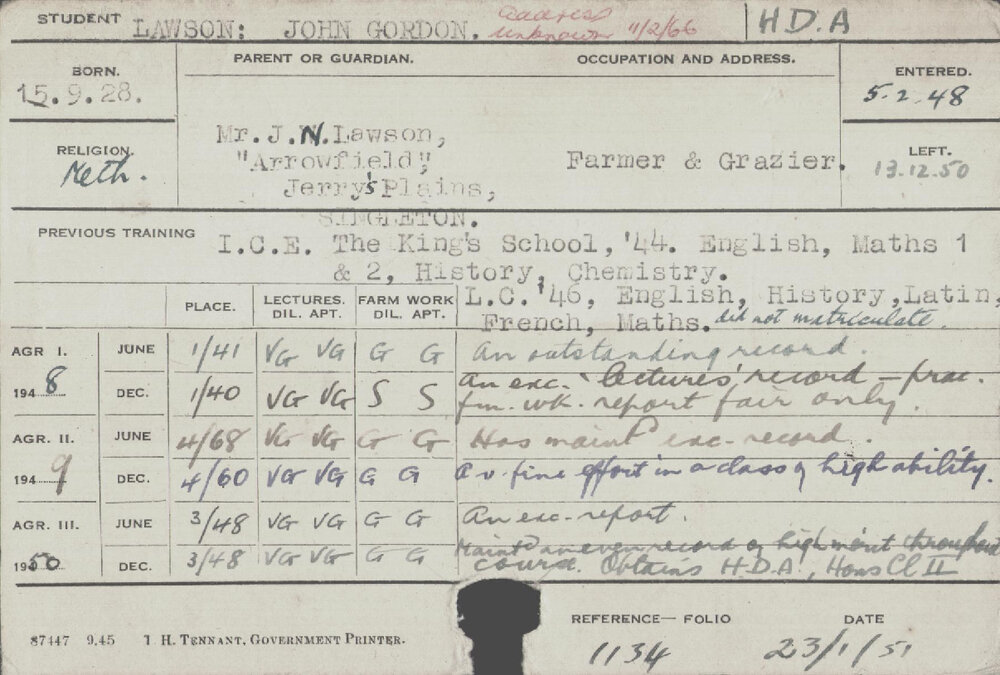 STUDENT LAWSON: JOHN GORDON. Address unknown 11/2/66 H.D.A
BORN. PARENT OR GUARDIAN. OCCUPATION AND ADDRESS. ENTERED.
15.9.28. 5.2.48
RELIGION. Mr.J.N.Lawson, LEFT.
Meth. "Arrowfield", Farmer & Grazier. 13.12.50
Jerry's Plains,
SINGLETON.
PREVIOUS TRAINING I.C.E. The King's School, '44. English, Maths 1
& 2, History, Chemistry.
PLACE. LECTURES. FARM WORK L.C. '46, English, History, Latin,
DIL. APT. DIL. APT. French, Maths. did not matriculate.
AGR I. JUNE 1/41 VG VG G G An outstanding record.
1948 DEC. 1/40 VG VG S S An exc. 'lectures' record – prac.
fm. wk. report fair only.
AGR. II. JUNE 4/68 VG VG G G Has maintd exc. record.
1949 DEC. 4/60 VG VG G G A v. fine effort in a class of high ability.
AGR. III. JUNE 3/48 VG VG G G An exc. report.
1950 DEC. 3/48 VG VG G G Maintd an even record of high merit throughout
course. Obtains H.D.A., Hons Cl II
REFERENCE— FOLIO DATE
87447 9.45 T H. TENNANT, GOVERNMENT PRINTER. 1134 23/1/51